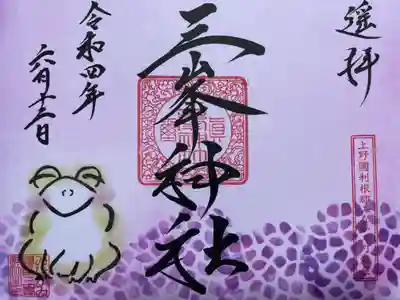 遥拝
三峯神社
令和四年
六月十二日
上野國利根郡